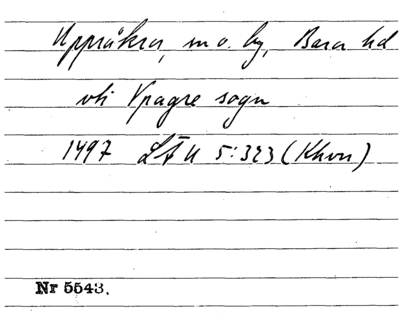 Uppråkra, sn o. by, Bara hd
vti Vpagre sogn
1497 LÄU 5:323 (Khvn)
Nr 5543.